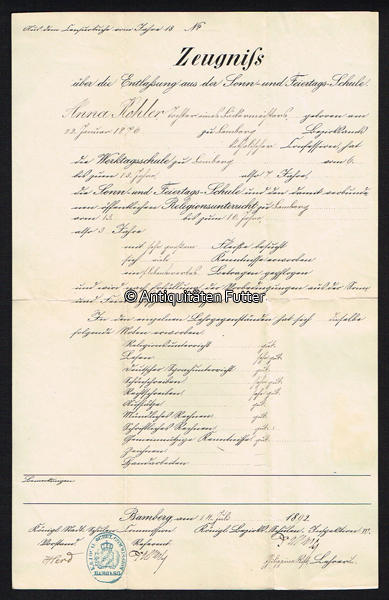 Aus dem Censurbuche vom Jahre 18 №
Zeugniß
über die Entlassung aus der Sonn- und Feiertags-Schule.
Anna Kohler Tochter eines Bäckermeisters, geboren am
22. Januar 1876 zu Bamberg Bezirksamts
katholischer Confession, hat
die Werktagsschule zu Bamberg vom 6.
bis zum 13. Jahre, also 7 Jahre,
die Sonn- und Feiertags-Schule und den damit verbunde-
nen öffentlichen Religionsunterricht zu Bamberg
vom 13. bis zum 16. Jahre,
also 3 Jahre
mit sehr großem Fleiße besucht
sich viele Kenntnisse erworben
ein lobenswertes Betragen gepflogen
und wird nach Vorbedingungen aus der Sonn-
und
© Antiquitäten Futter
In den einzelnen Lehrgegenständen hat sich dieselbe
folgende Noten erworben
Religionsunterricht gut.
Lesen sehr gut.
Deutscher Sprachunterricht gut.
Schönschreiben sehr gut.
Rechtschreiben sehr gut.
Aufsätze gut.
Mündliches Rechnen gut.
Schriftliches Rechnen gut.
Gemeinnützige Kenntnisse gut.
Zeichnen
Handarbeiten
Bemerkungen
Bamberg, am 14. Juli 1892
Königl. Stadt-Schulen Commission Königl. Bezirks-Schulen-Inspektion
Vorstand Referent
Herd Lehrer
BAMBERG